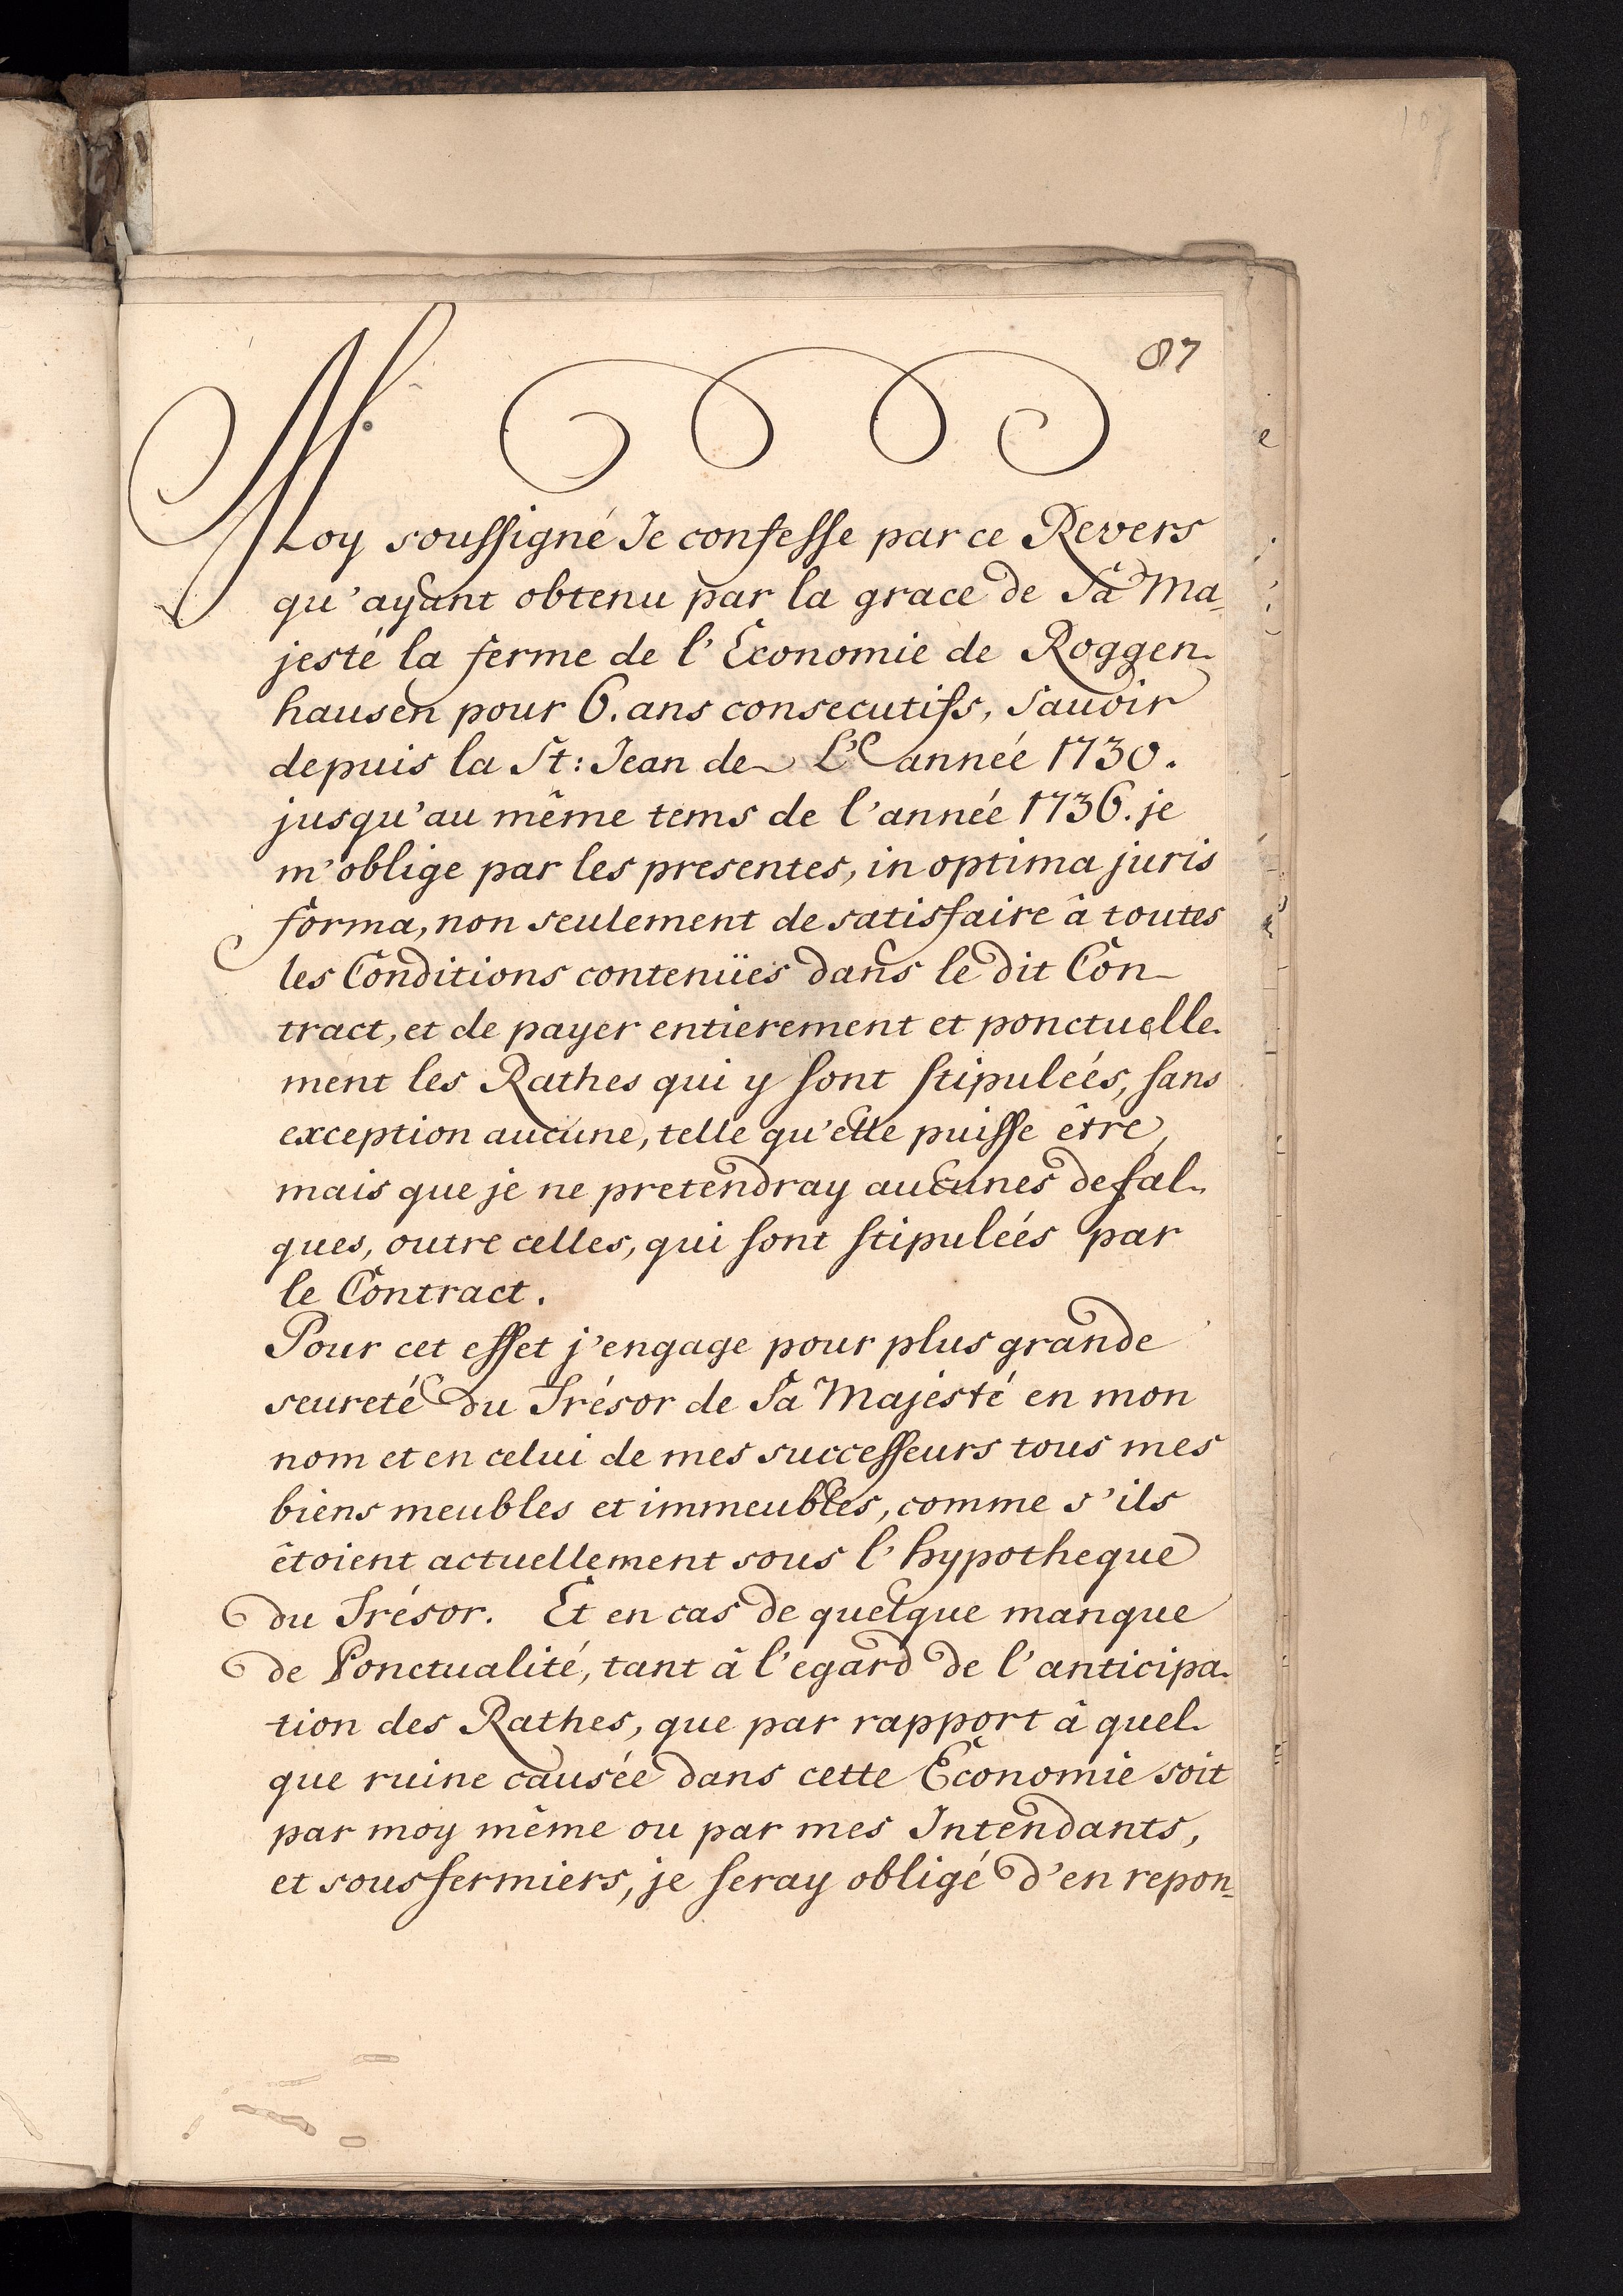 87
Moy soussigné Je confesse par ce Revers
qu'ayant obtenu par la grace de Sa Ma=
jesté la ferme de l'Economie de Roggen-
hausen pour 6. ans consecutifs, Savoir
depuis la St: Jean de L'année 1730.
jusqu'au même tems de l'année 1736. je
m'oblige par les presentes, in optima juris
forma, non seulement de satisfaire â toutes
les Conditions contenües dans le dit Con-
tract, et de payer entierement et ponctuelle-
ment les Rathes qui y sont stipuleés, sans
exception aucune, telle qu'elle puisse être,
mais que je ne pretendray aucunes defal-
ques, outre celles, qui sont stipuleés par
le Contract.
Pour cet effet j'engage pour plus grande
seureté du Trésor de Sa Majesté en mon
nom et en celui de mes successeurs tous mes
biens meubles et immeubles, comme s'ils
êtoient actuellement sous l'hypotheque
du Trésor. Et en cas de quelque manque
de Ponctualité, tant â l'egard de l'anticipa-
tion des Rathes, que par rapport â quel-
que ruine causée dans cette Economie soit
par moy même ou par mes Intendants,
et sousfermiers, je seray obligé d'en repon=